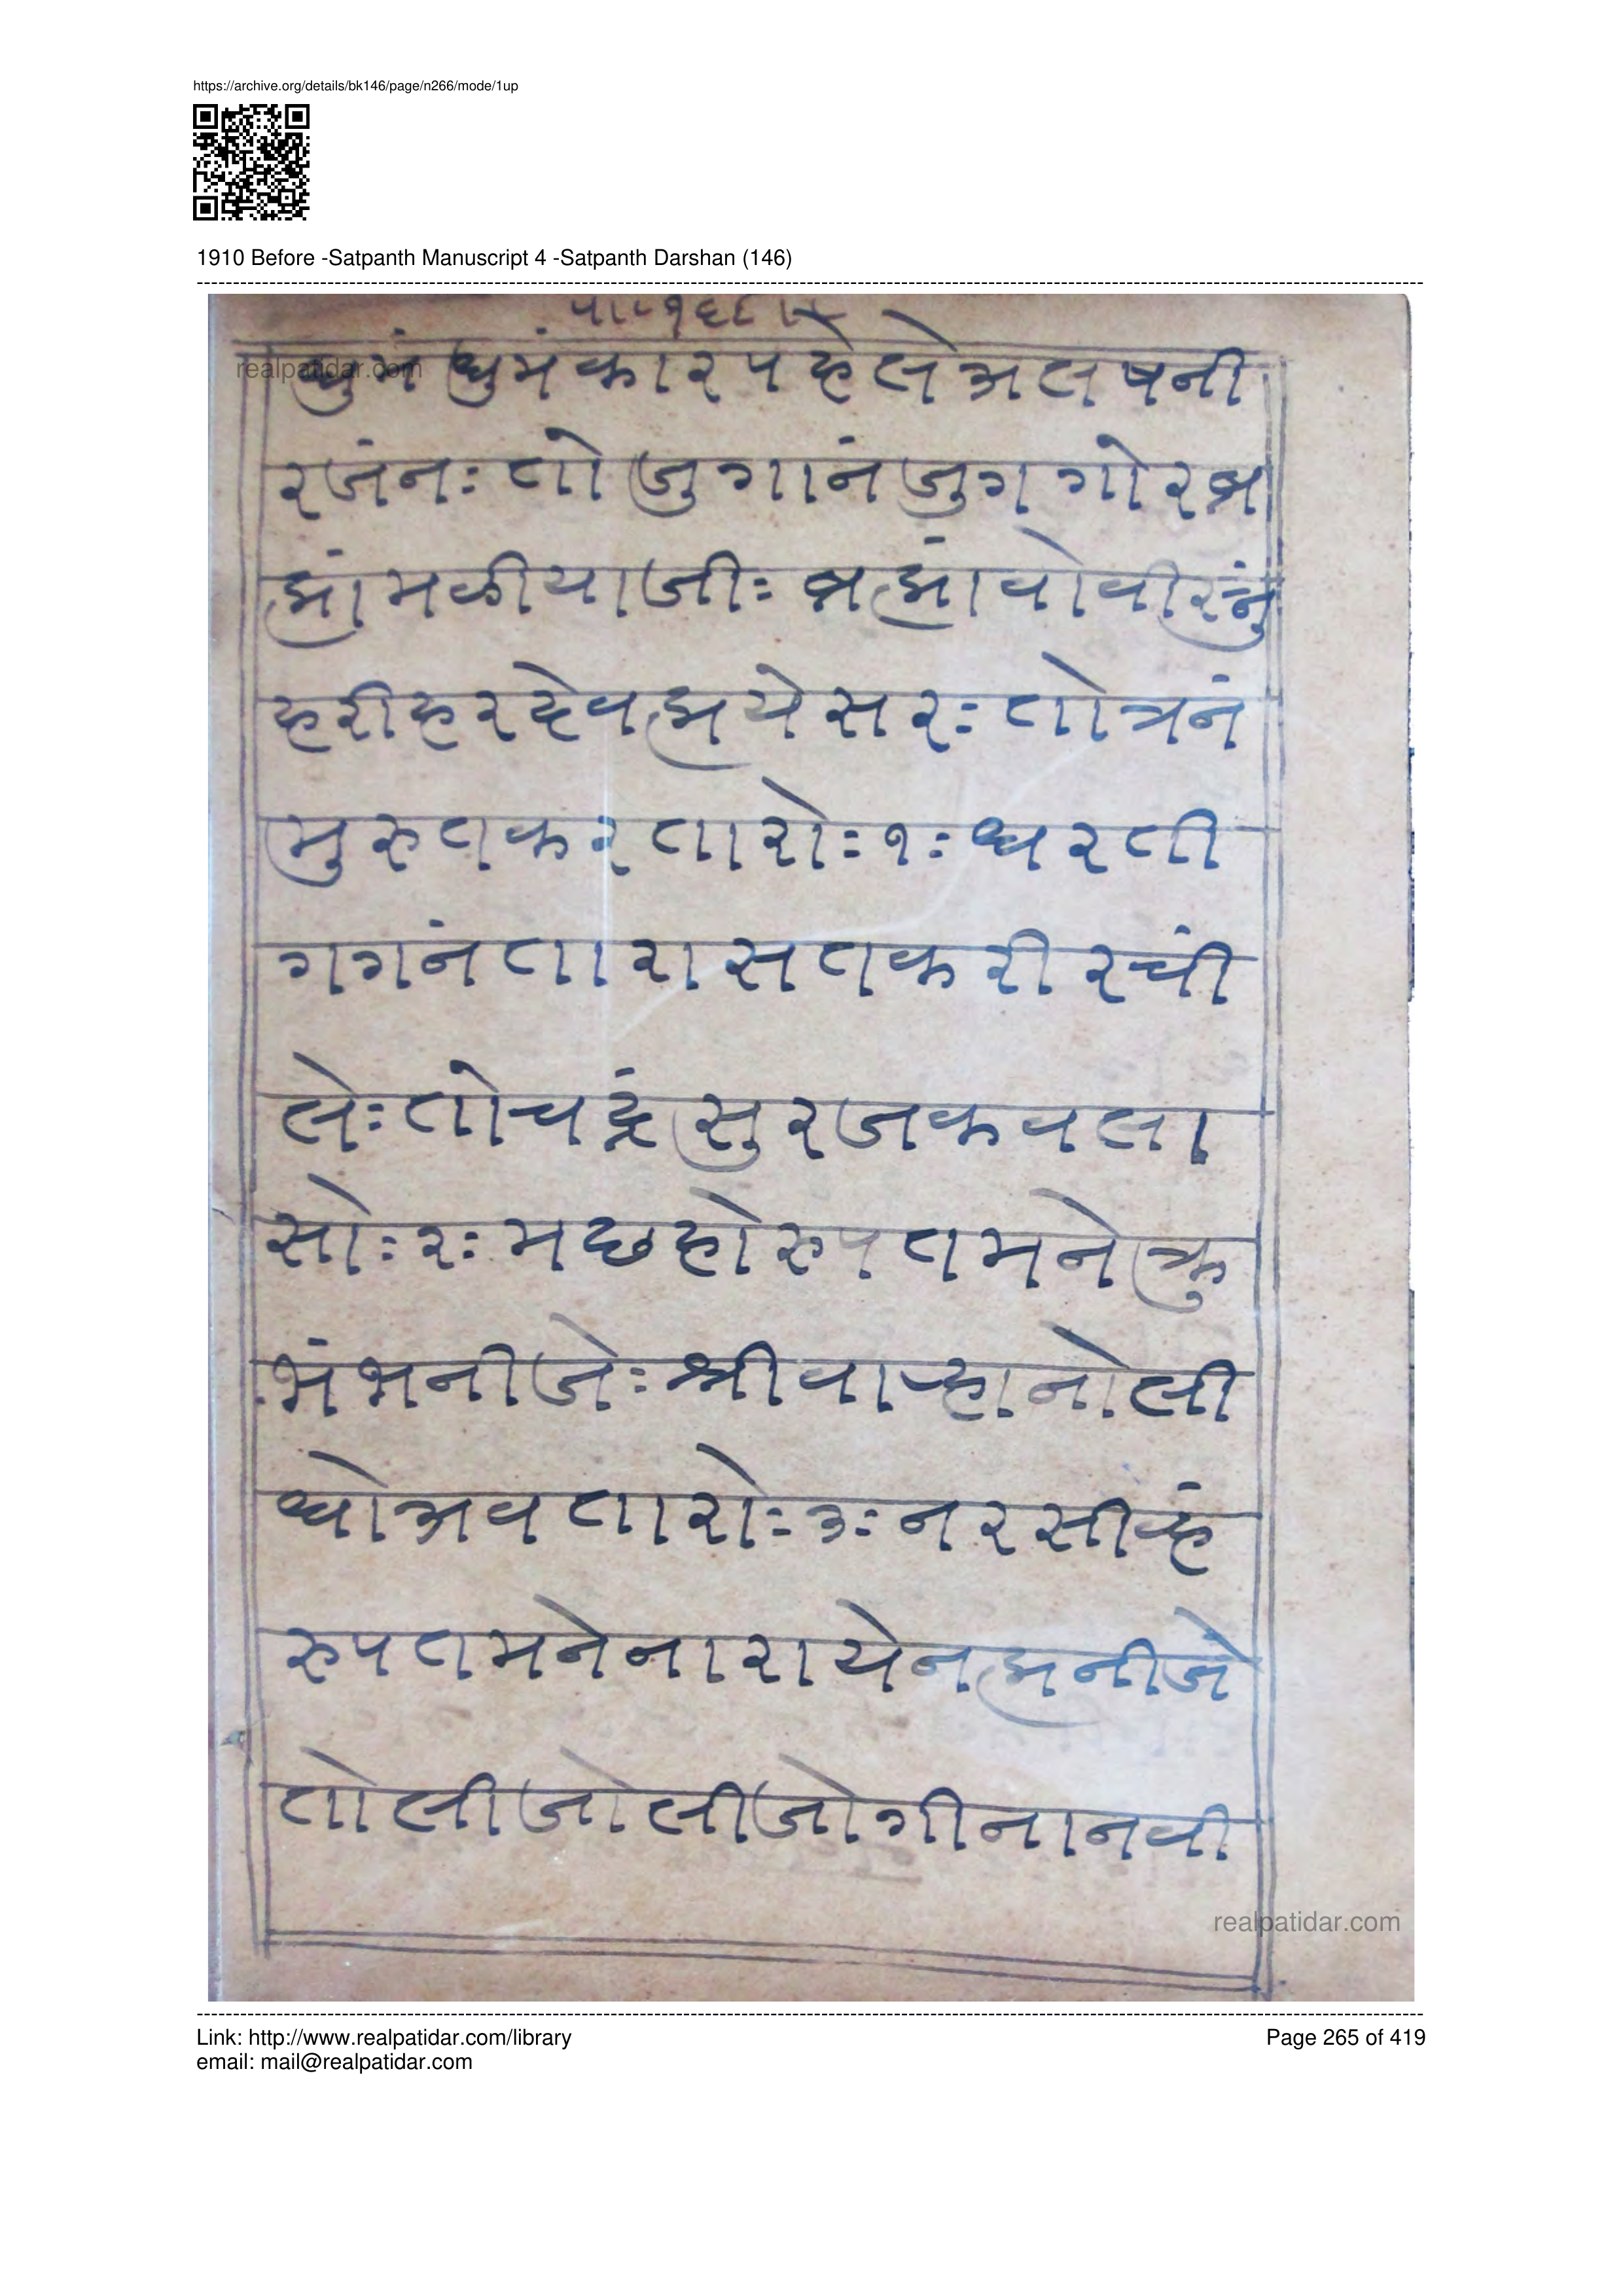 https://archive.org/details/bk146/page/n266/mode/1up
1910 Before -Satpanth Manuscript 4 -Satpanth Darshan (146)
realpatidar.com
धुमं धुमंकारपहेलेअलषनी
रजंनः तोजुगानंजुगगोरब्र
ह्मांमळीयाजीः ब्रह्मांवोवीस्नुं
हरीहरदेवह्मयेसरः तोत्रनं
मुरुतकरतारोः१ः धरती
गगनंतारासतकरीरची
लेः तोचद्रंसुरजकवला
सोः२ः मछहोरुपतमनेक्रु
भंभनीजेः श्रीवाऱ्हानोली
धोअवतारोः३ः नरसीन्हं
रुपतमनेनारायेनह्मनीजे
तोलीजोलीजोगीनानवी
realpatidar.com
Link: http://www.realpatidar.com/library
Page 265 of 419
email: mail@realpatidar.com